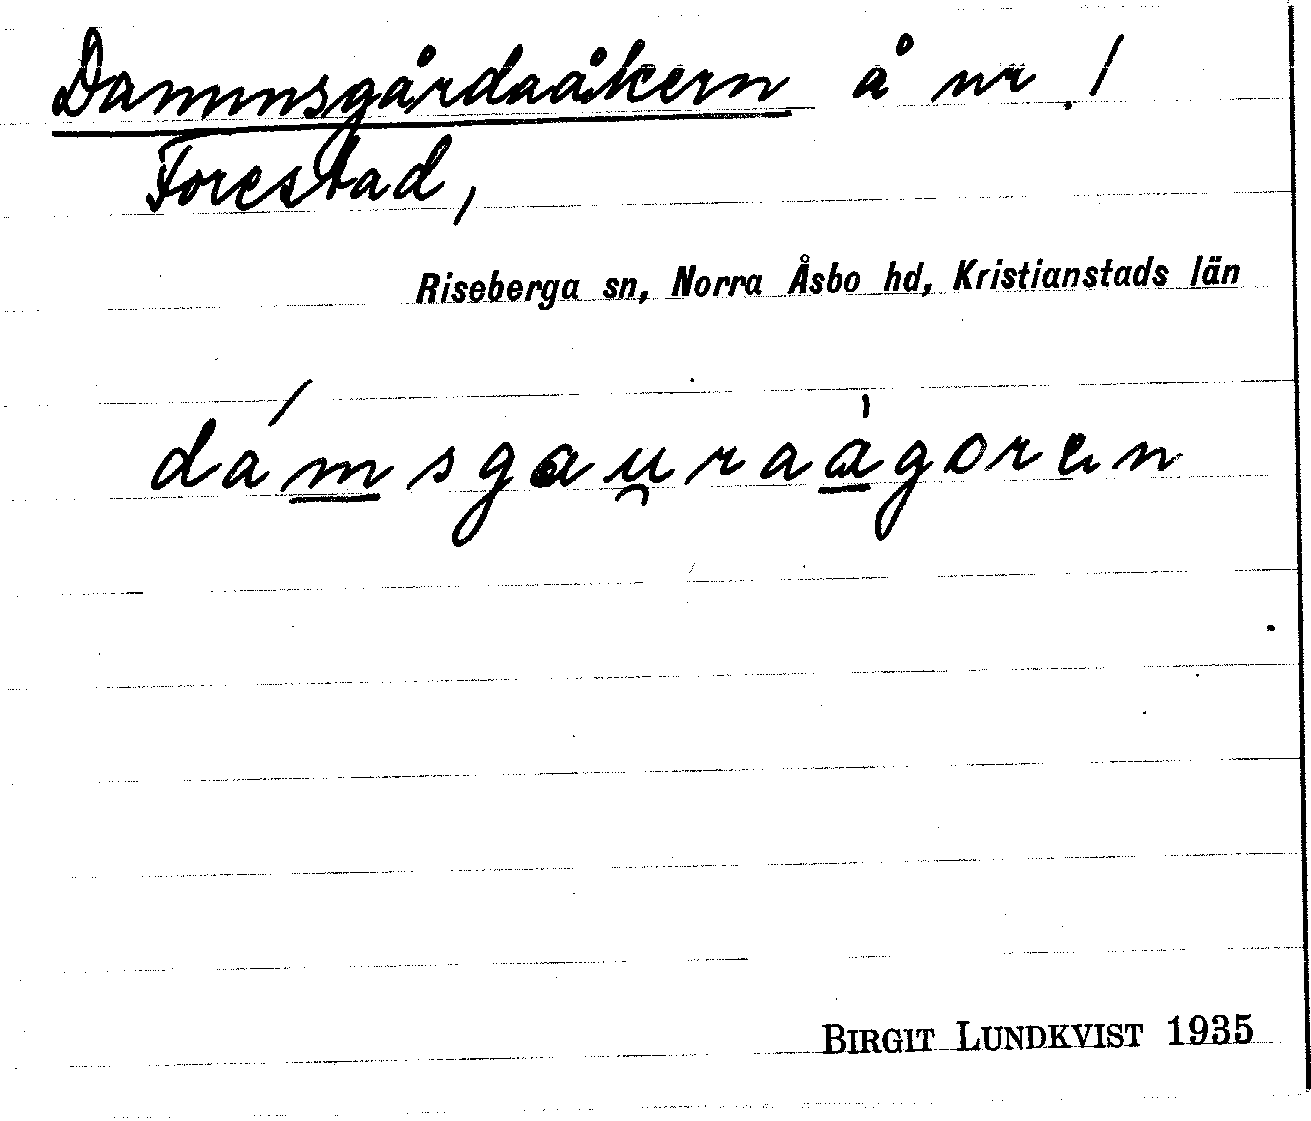 Dammsgårdaåkern å nr 1
Forestad,
Riseberga sn, Norra Åsbo hd, Kristianstads län
dámsgau̯raágorɛn
BIRGIT LUNDKVIST 1935